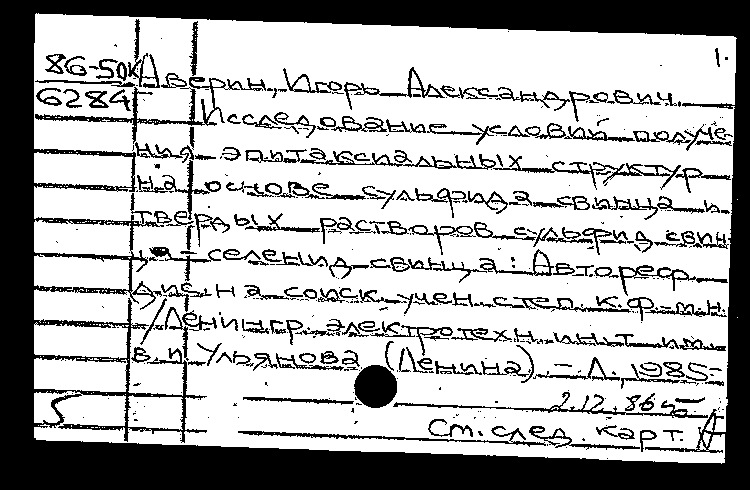 1.
86-50к Аверин, Игорь Александрович.
6284
Исследование условий получе-
ния эпитаксиальных структур
на основе сульфида свинца и
твердых растворов сульфид свин-
ца - селенид свинца : Автореф.
дис. на соиск. учен. степ. к.ф.-м.н.
/Ленингр. электротехн. ин-т им.
В.И. Ульянова (Ленина). - Л., 1985-
2.12.86
5 См. след. карт. А